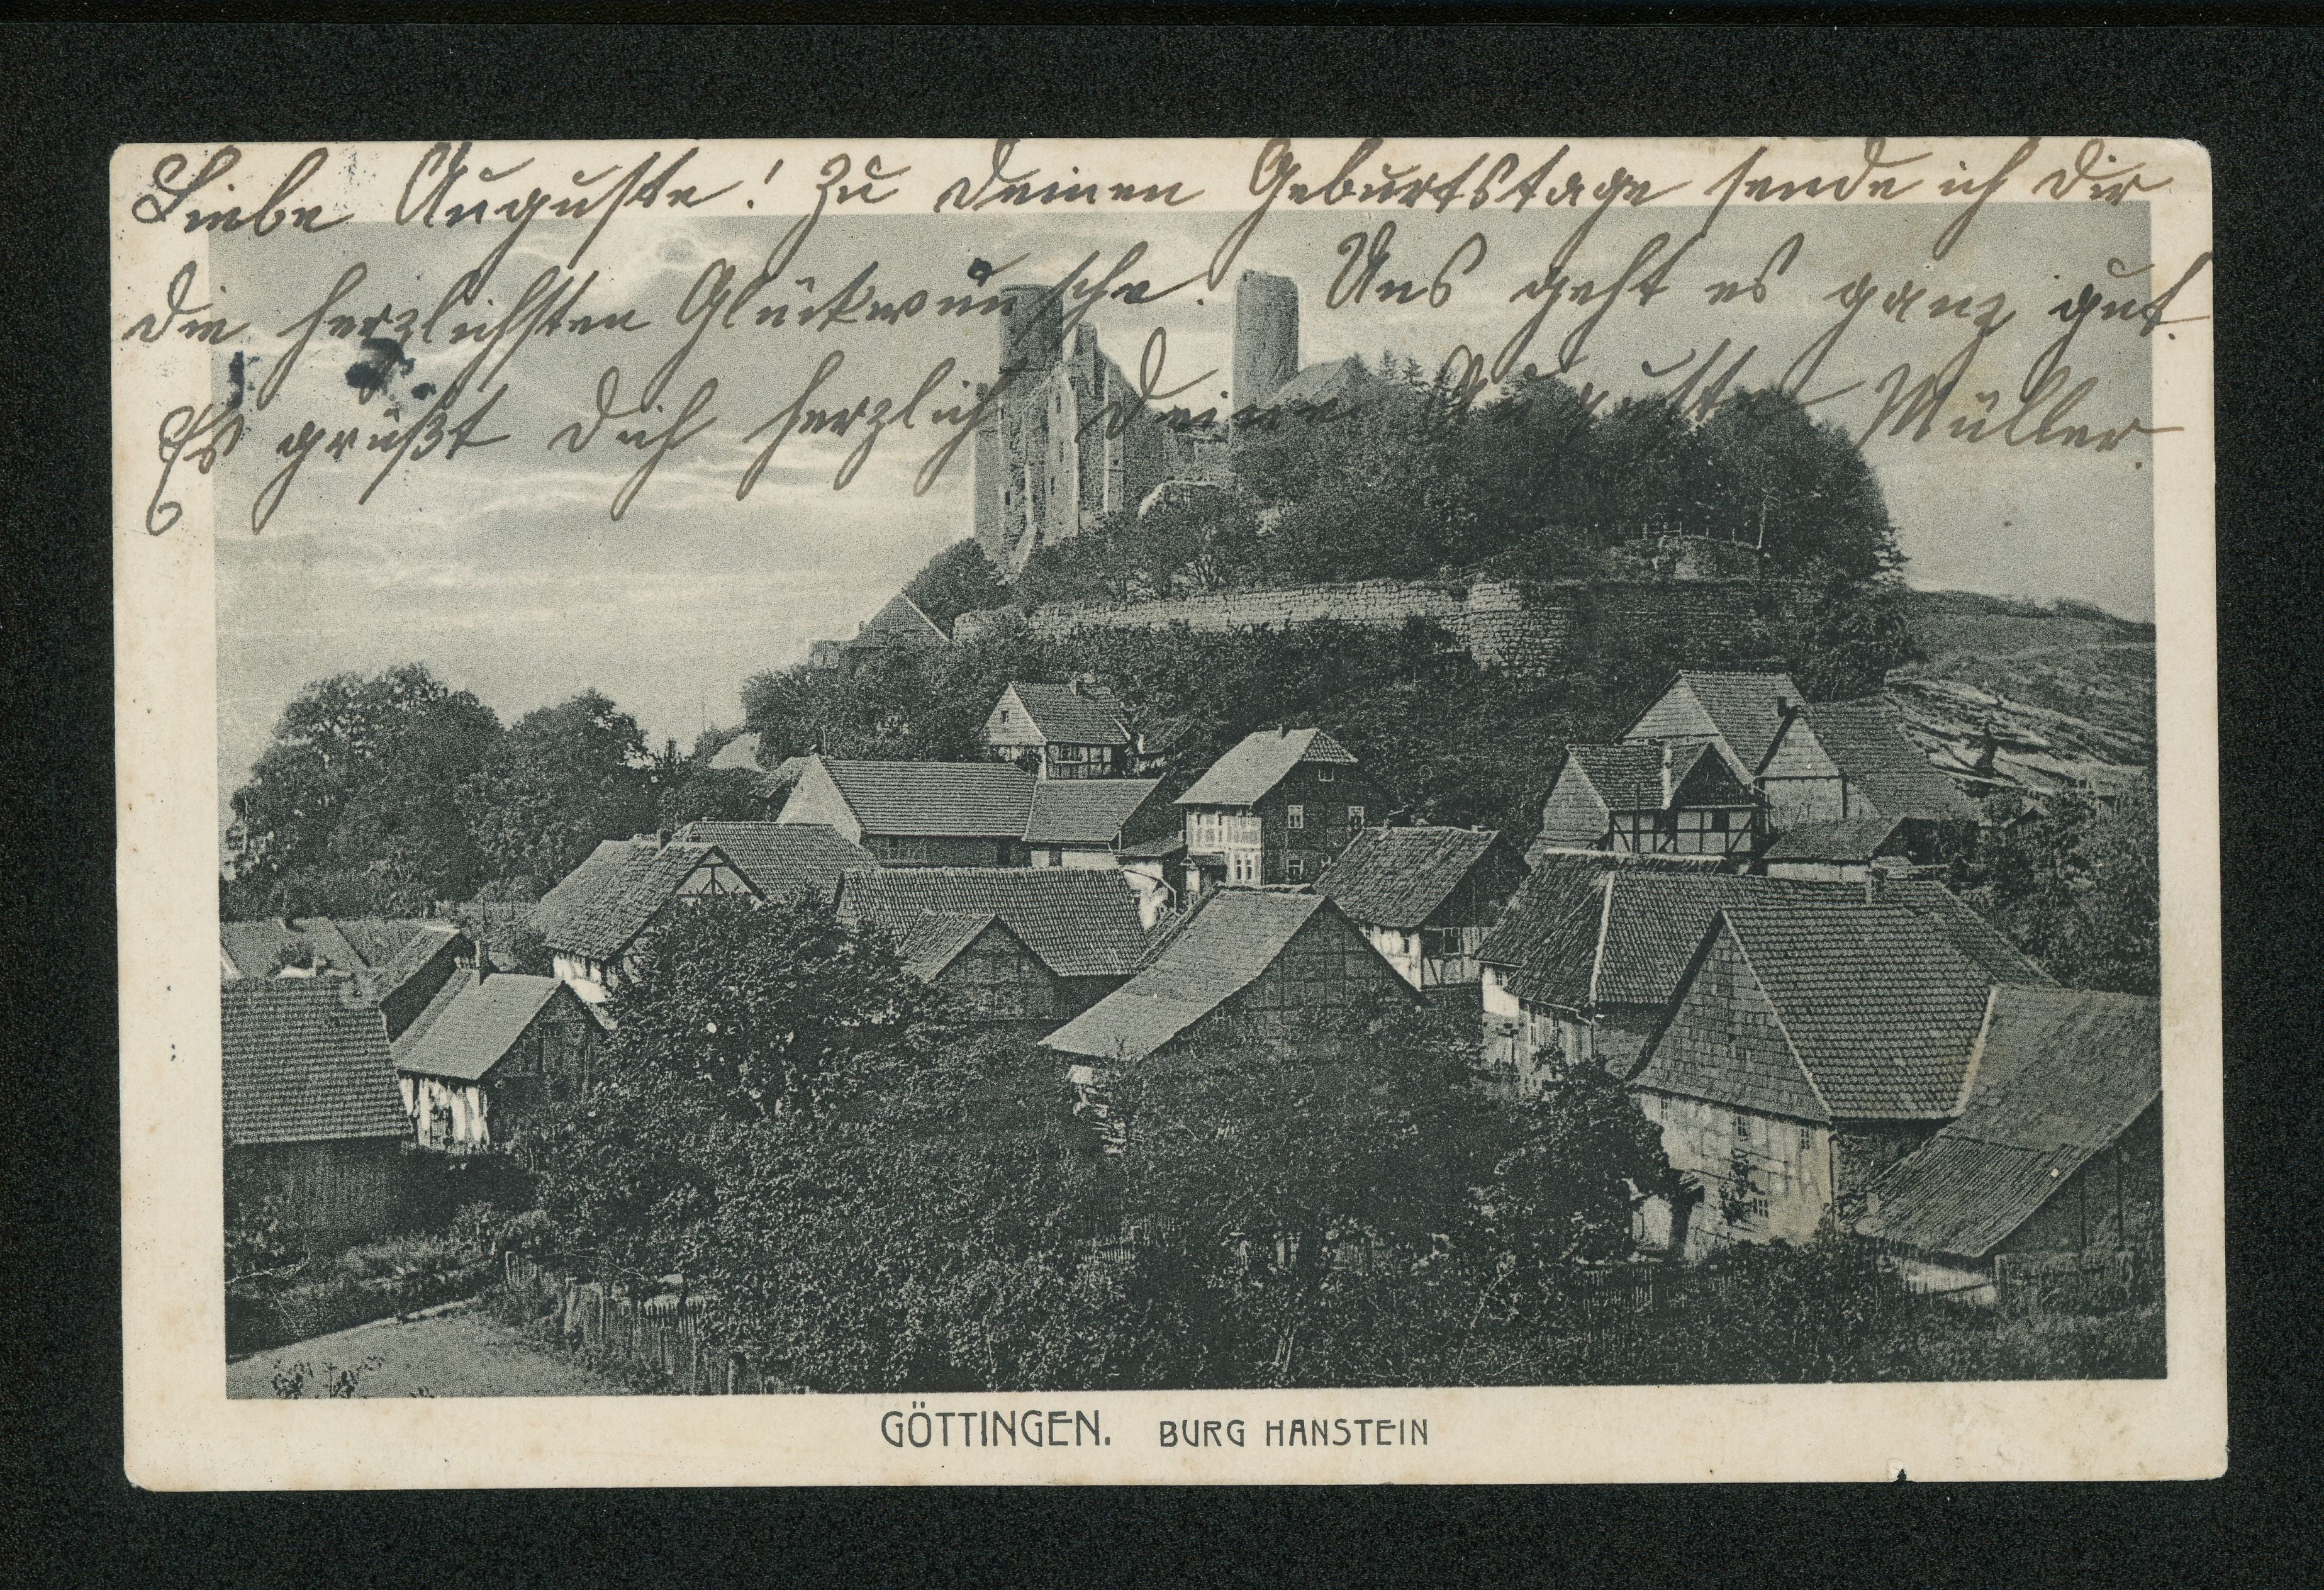 Liebe Auguste! Zu deinen Geburtstage sende ich dir
die herzlichsten Glückwünsche. Uns geht es ganz gut.
Es grüßt dich herzlich deine Auguste Müller.
GÖTTINGEN. BURG HANSTEIN